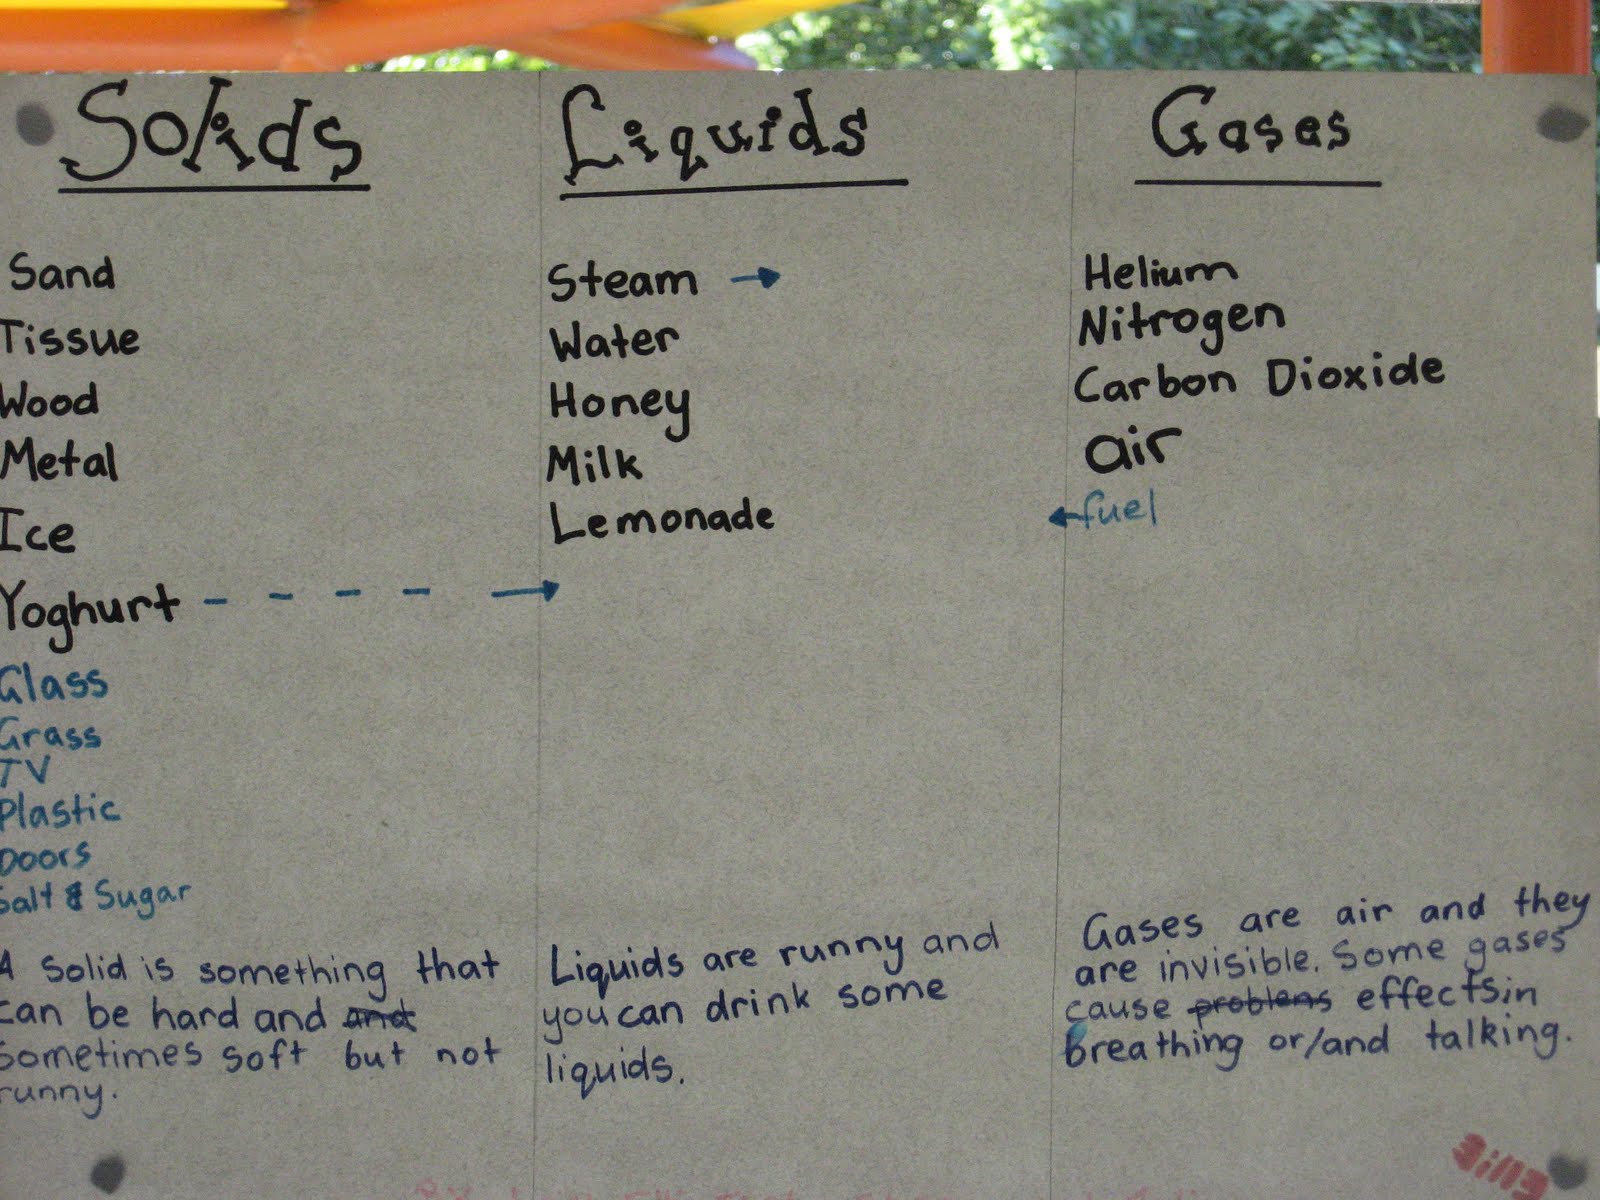 Solids
Sand
Tissue
Wood
Metal
Ice
Yoghurt
Glass
Grass
TV
Plastic
Doors
Salt & Sugar
A solid is something that
can be hard and and
sometimes soft but not
runny.
Liquids
Steam
Water
Honey
Milk
Lemonade
Liquids are runny and
you can drink some
liquids.
Gases
Helium
Nitrogen
Carbon Dioxide
air
fuel
Gases are air and they
are invisible. Some gases
cause problems effects in
breathing or/and talking.